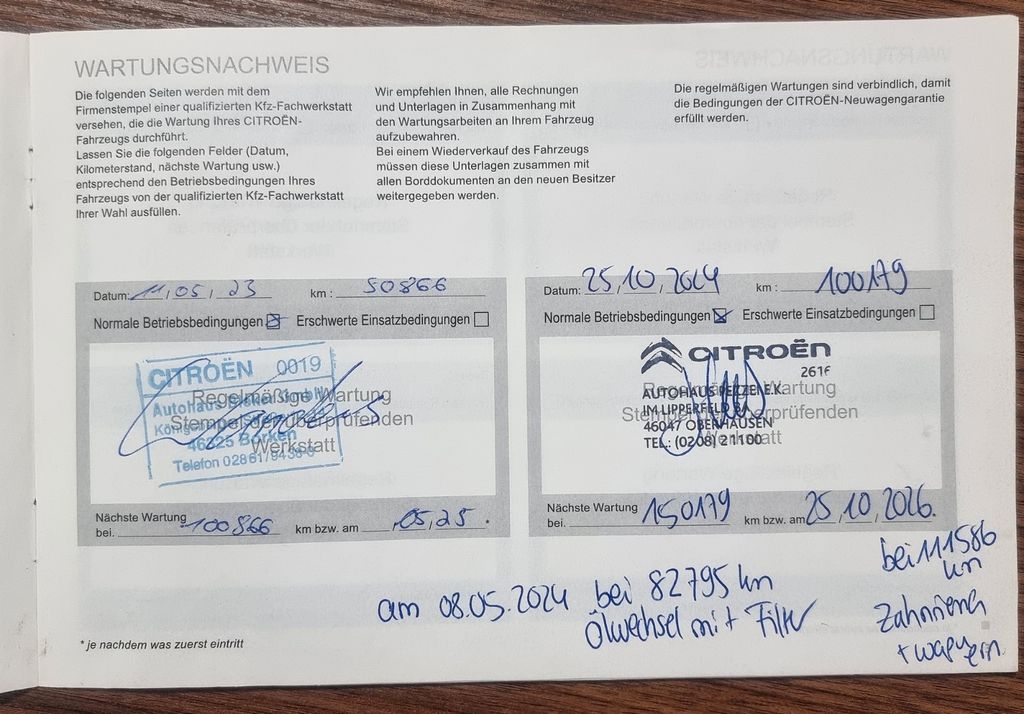 WARTUNGSNACHWEIS
Die folgenden Seiten werden mit dem
Firmenstempel einer qualifizierten Kfz-Fachwerkstatt
versehen, die die Wartung Ihres CITROËN-
Fahrzeugs durchführt.
Lassen Sie die folgenden Felder (Datum,
Kilometerstand, nächste Wartung usw.)
entsprechend den Betriebsbedingungen Ihres
Fahrzeugs von der qualifizierten Kfz-Fachwerkstatt
Ihrer Wahl ausfüllen.
Wir empfehlen Ihnen, alle Rechnungen
und Unterlagen in Zusammenhang mit
den Wartungsarbeiten an Ihrem Fahrzeug
aufzubewahren.
Bei einem Wiederverkauf des Fahrzeugs
müssen diese Unterlagen zusammen mit
allen Borddokumenten an den neuen Besitzer
weitergegeben werden.
Die regelmäßigen Wartungen sind verbindlich, damit
die Bedingungen der CITROËN-Neuwagengarantie
erfüllt werden.
Datum: 11,05,23 km : 50866
Normale Betriebsbedingungen Erschwerte Einsatzbedingungen
CITROËN 0019
Regelmäßige Wartung
Autohaus
Stempel der überprüfenden
46325 Borken
Werkstatt
Telefon 02861/9438-0
Nächste Wartung
bei. 100866 km bzw. am ,05,25.
Datum: 25,10,2024 km : 100179
Normale Betriebsbedingungen Erschwerte Einsatzbedingungen
CITROËN
261F
Regelmäßige Wartung
AUTOHAUS E.K.
Stempel der überprüfenden
IM LIPPERFELD
46047 OBERHAUSEN
Werkstatt
TEL.: (0208) 21100
Nächste Wartung
bei. 150179 km bzw. am 25,10,2026.
bei 111586
km
Zahnriemen
+ wapu
ern.
am 08.05.2024 bei 82795 km
Ölwechsel mit Filter
* je nachdem was zuerst eintritt